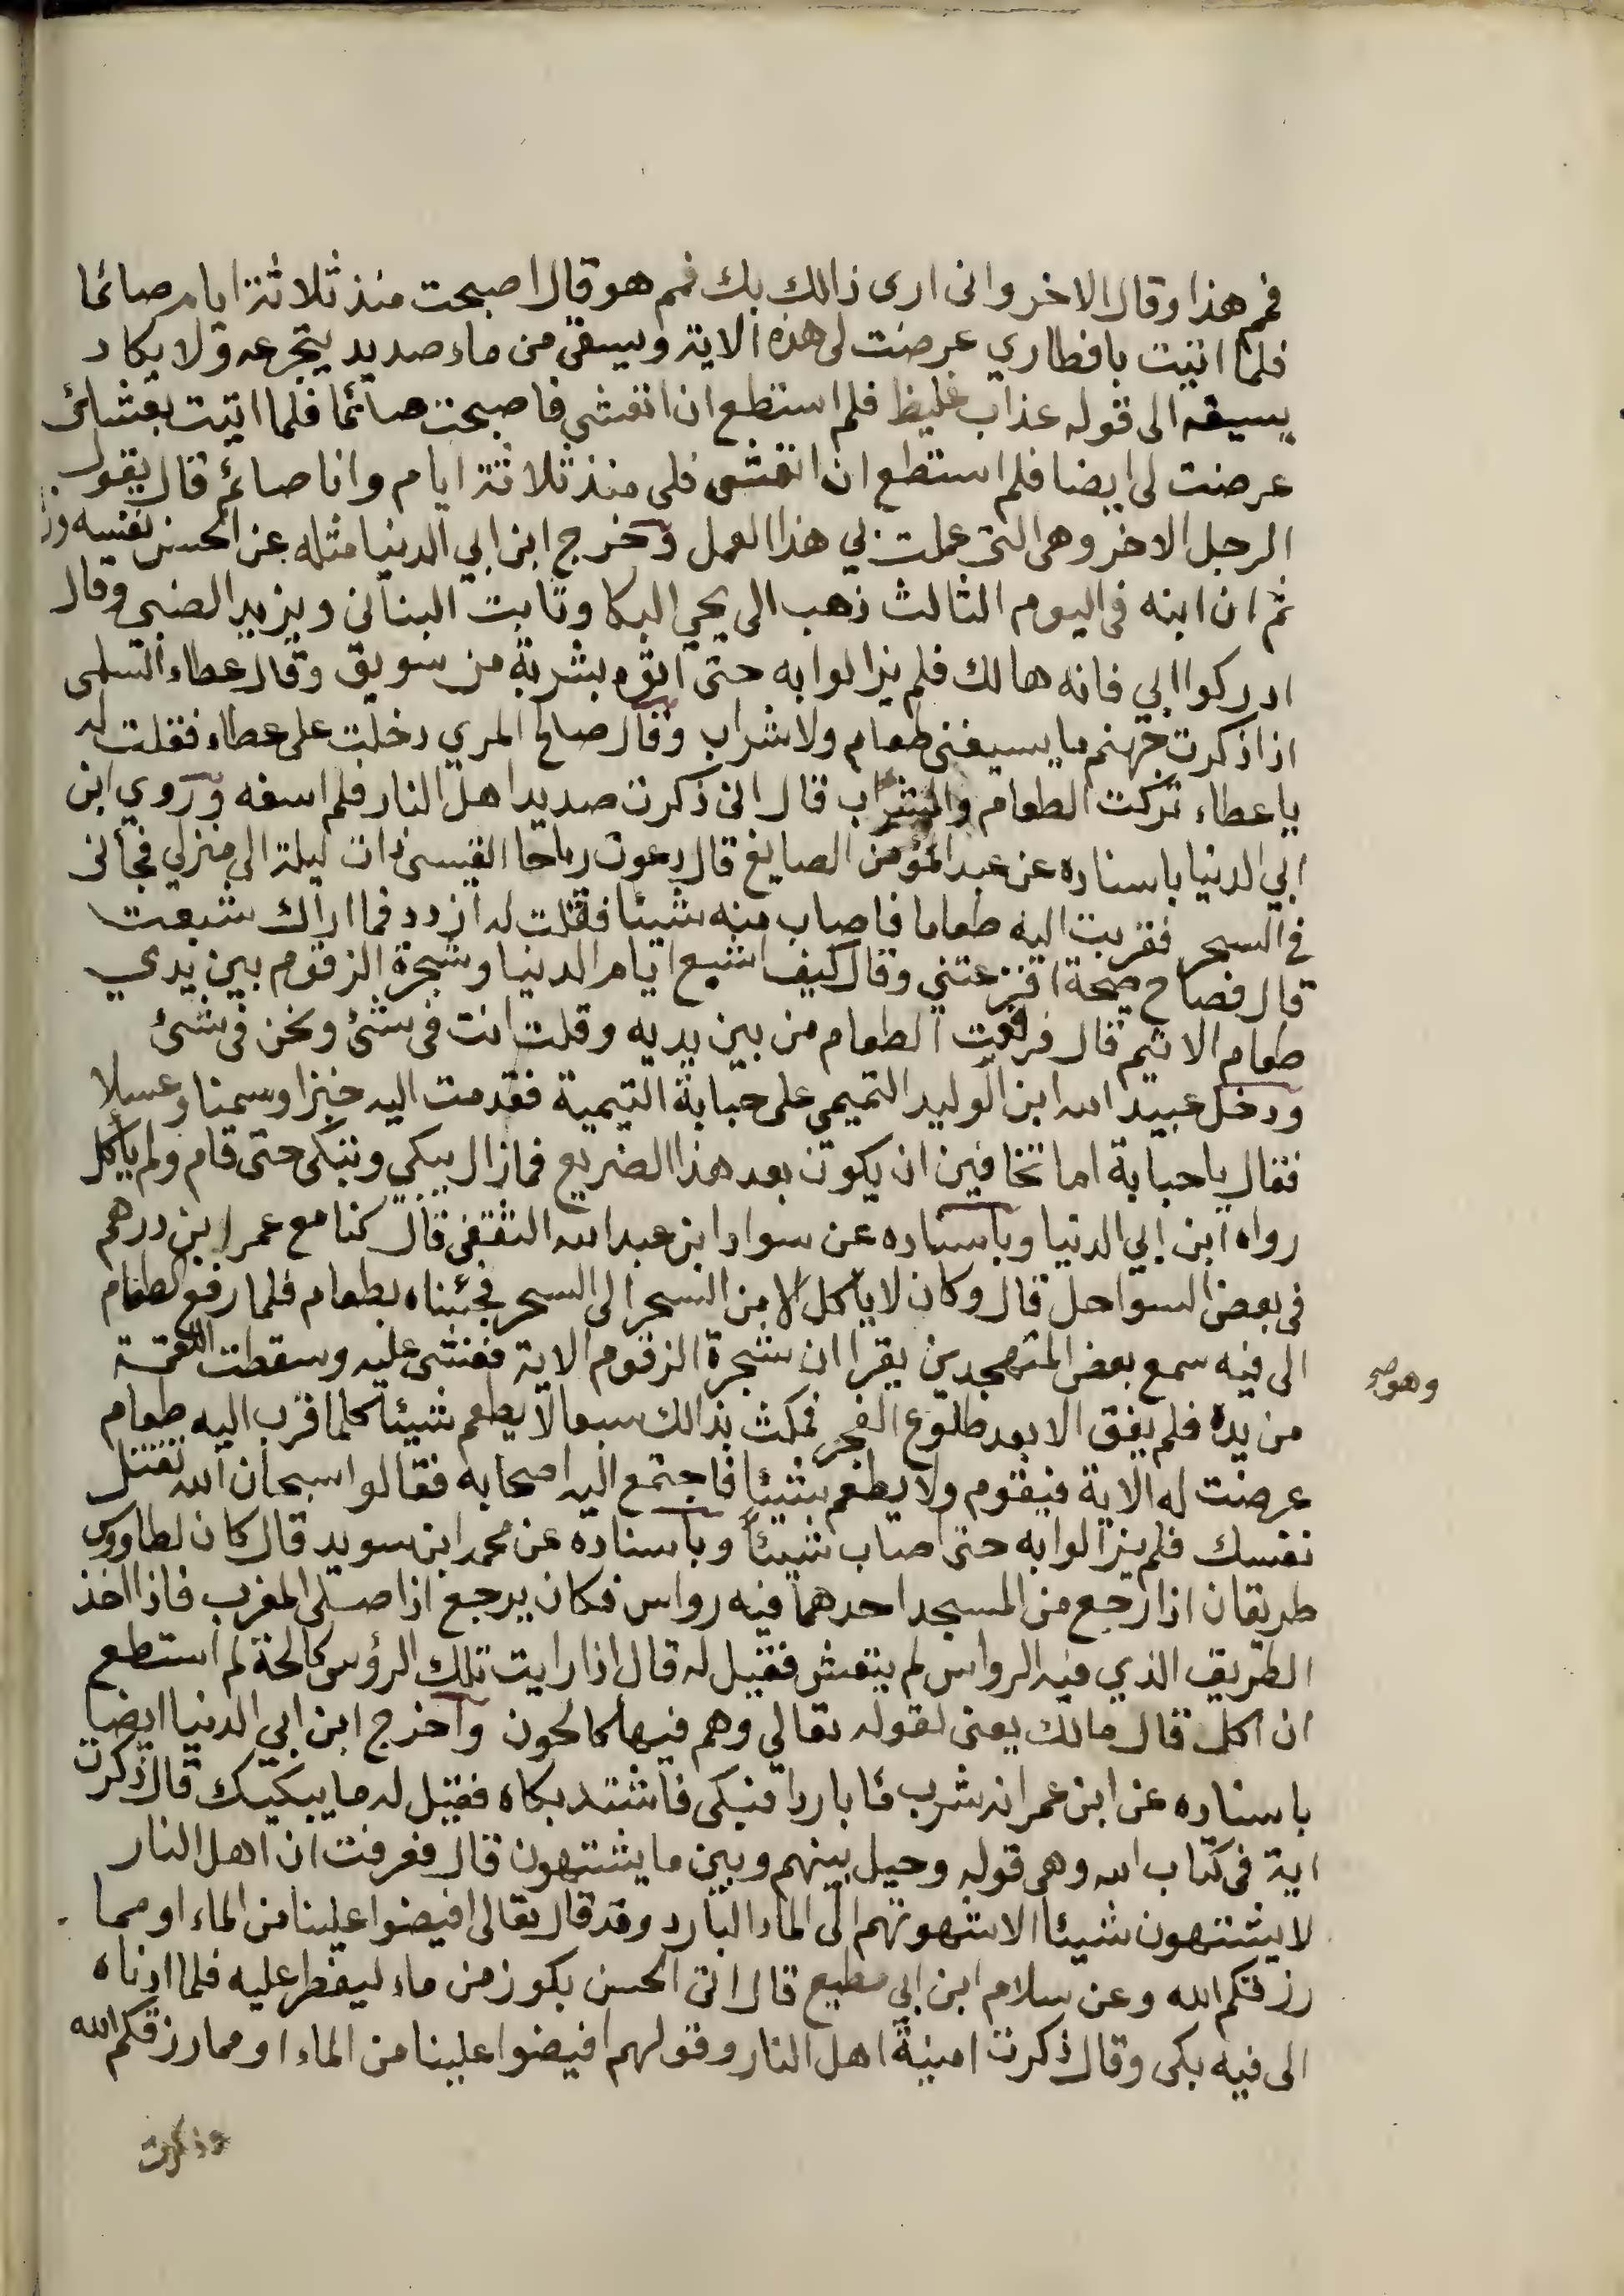 فمم هذا وقال الاخر وانى ارى ذالك بك فمم هو قال اصبحت منذ ثلاثة ايام صائما
فلما اتيت بافطاري عرضت لى هذه الاية ويسقى من ماء صديد يتجرعه ولا يكاد
يسيغه الى قوله عذاب غليظ فلم استطع ان اتعشى فاصبحت صائما فلما اتيت بعشائى
عرضت لى ايضا فلم استطع ان اتعشى فلى منذ ثلاثة ايام وانا صائم قال يقول
الرجل الاخر وهى التى عملت بي هذا العمل وخرج ابن ابي الدنيا مثله عن الحسن نفسه
ثم ان ابنه فى اليوم الثالث ذهب الى يحي البكا وثابت البنانى ويزيد الضبي وقال
ادركوا ابي فانه هالك فلم يزالوا به حتى اتوه بشربة من سويق وقال عطاء السلمى
اذا ذكرت جهنم ما يسيغنى طعام ولا شراب وقال صالح المري دخلت على عطاء فقلت له
يا عطاء تركت الطعام والشراب قال انى ذكرت صديد اهل النار فلم اسغه وروي ابن
ابي الدنيا باسناده عن عبد المؤمن الصايغ قال دعوت رباحا القيسى ذات ليلة الى منزلي فجانى
فى السحر فقربت اليه طعاما فاصاب منه شيئا فقلت له ازدد فما اراك شبعت
قال فصاح صيحة افزعتني وقال كيف اشبع ايام الدنيا وشجرة الزقوم بين يدي
طعام الاثيم قال فرفعت الطعام من بين يديه وقلت انت فى شئ ونحن فى شئ
ودخل عبيد الله ابن الوليد التميمي على حبابة التيمية فقدمت اليه خبزا وسمنا وعسلا
فقال يا حبابة اما تخافين ان يكون بعد هذا الضريع فما زال يبكي وتبكى حتى قام ولم يأكل
رواه ابن ابي الدنيا وباسناده عن سوار ابن عبد الله الثقفى قال كنا مع عمر ابن درهم
فى بعض السواحل قال وكان لا يأكل الا من السحر الى السحر فجئناه بطعام فلما رفع الطعام
الى فيه سمع بعض المتهجدين يقرا ان شجرة الزقوم الاية فغشى عليه وسقطت اللقمة
وهو صح
من يده فلم يفق الا بعد طلوع الفجر فمكث بذالك سبعا لا يطعم شيئا كلما قرب اليه طعام
عرضت له الاية فيقوم ولا يطعم شيئا فاجتمع اليه اصحابه فقالوا سبحان الله تقتل
نفسك فلم يزالوا به حتى اصاب شيئا وباسناده عن محمد ابن سويد قال كان لطاووس
طريقان اذا رجع من المسجد احدهما فيه رواس فكان يرجع اذا صلى المغرب فاذا اخذ
الطريق الذي فيه الرواس لم يتعش فقيل له قال اذا رايت تلك الرؤس كالحة لم استطع
ان اكل قال مالك يعنى لقوله تعالي وهم فيها كالحون واخرج ابن ابي الدنيا ايضا
باسناده عن ابن عمر انه شرب ماء باردا فبكى فاشتد بكاه فقيل له ما يبكيك قال ذكرت
اية فى كتاب الله وهى قوله وحيل بينهم وبين ما يشتهون قال فعرفت ان اهل النار
لا يشتهون شيئا الا شهوتهم الى الماء البارد وقد قال تعالى افيضوا علينا من الماء او مما
رزقكم الله وعن سلام ابن ابي مطيع قال اتى الحسن بكوز من ماء ليفطر عليه فلما ادناه
الى فيه بكى وقال ذكرت امنية اهل النار وقولهم افيضوا علينا من الماء او مما رزقكم الله
وذكرت